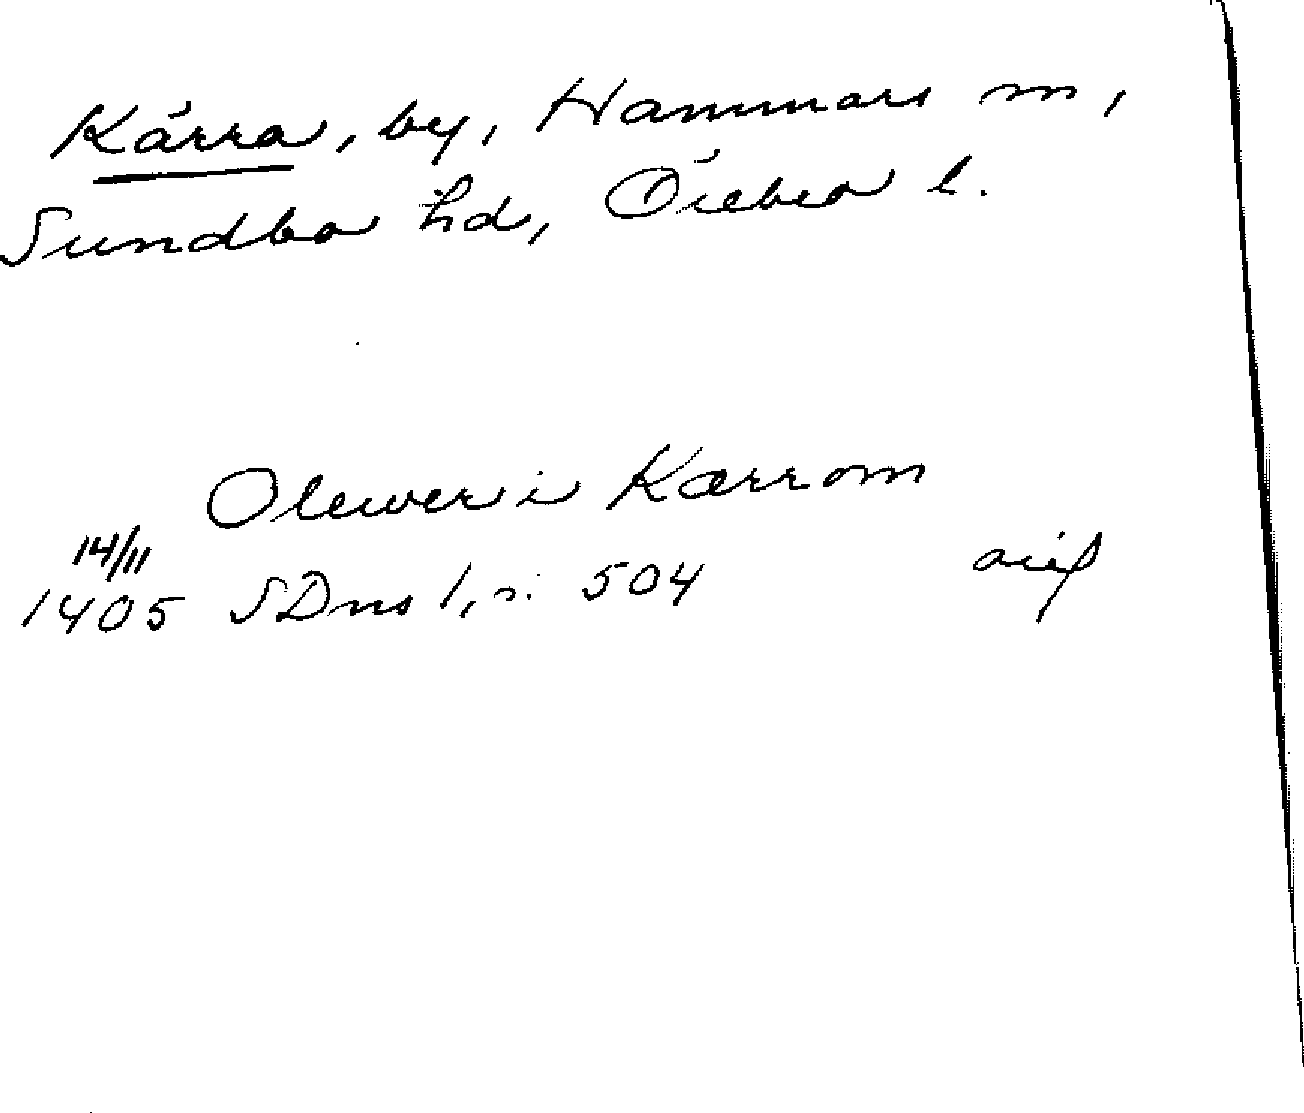 Kärra, by, Hammars sn,
Sundbo hd, Örebro l.
Olewer i Kærrom
14/11
1405 SDns 1, s. 504 avs